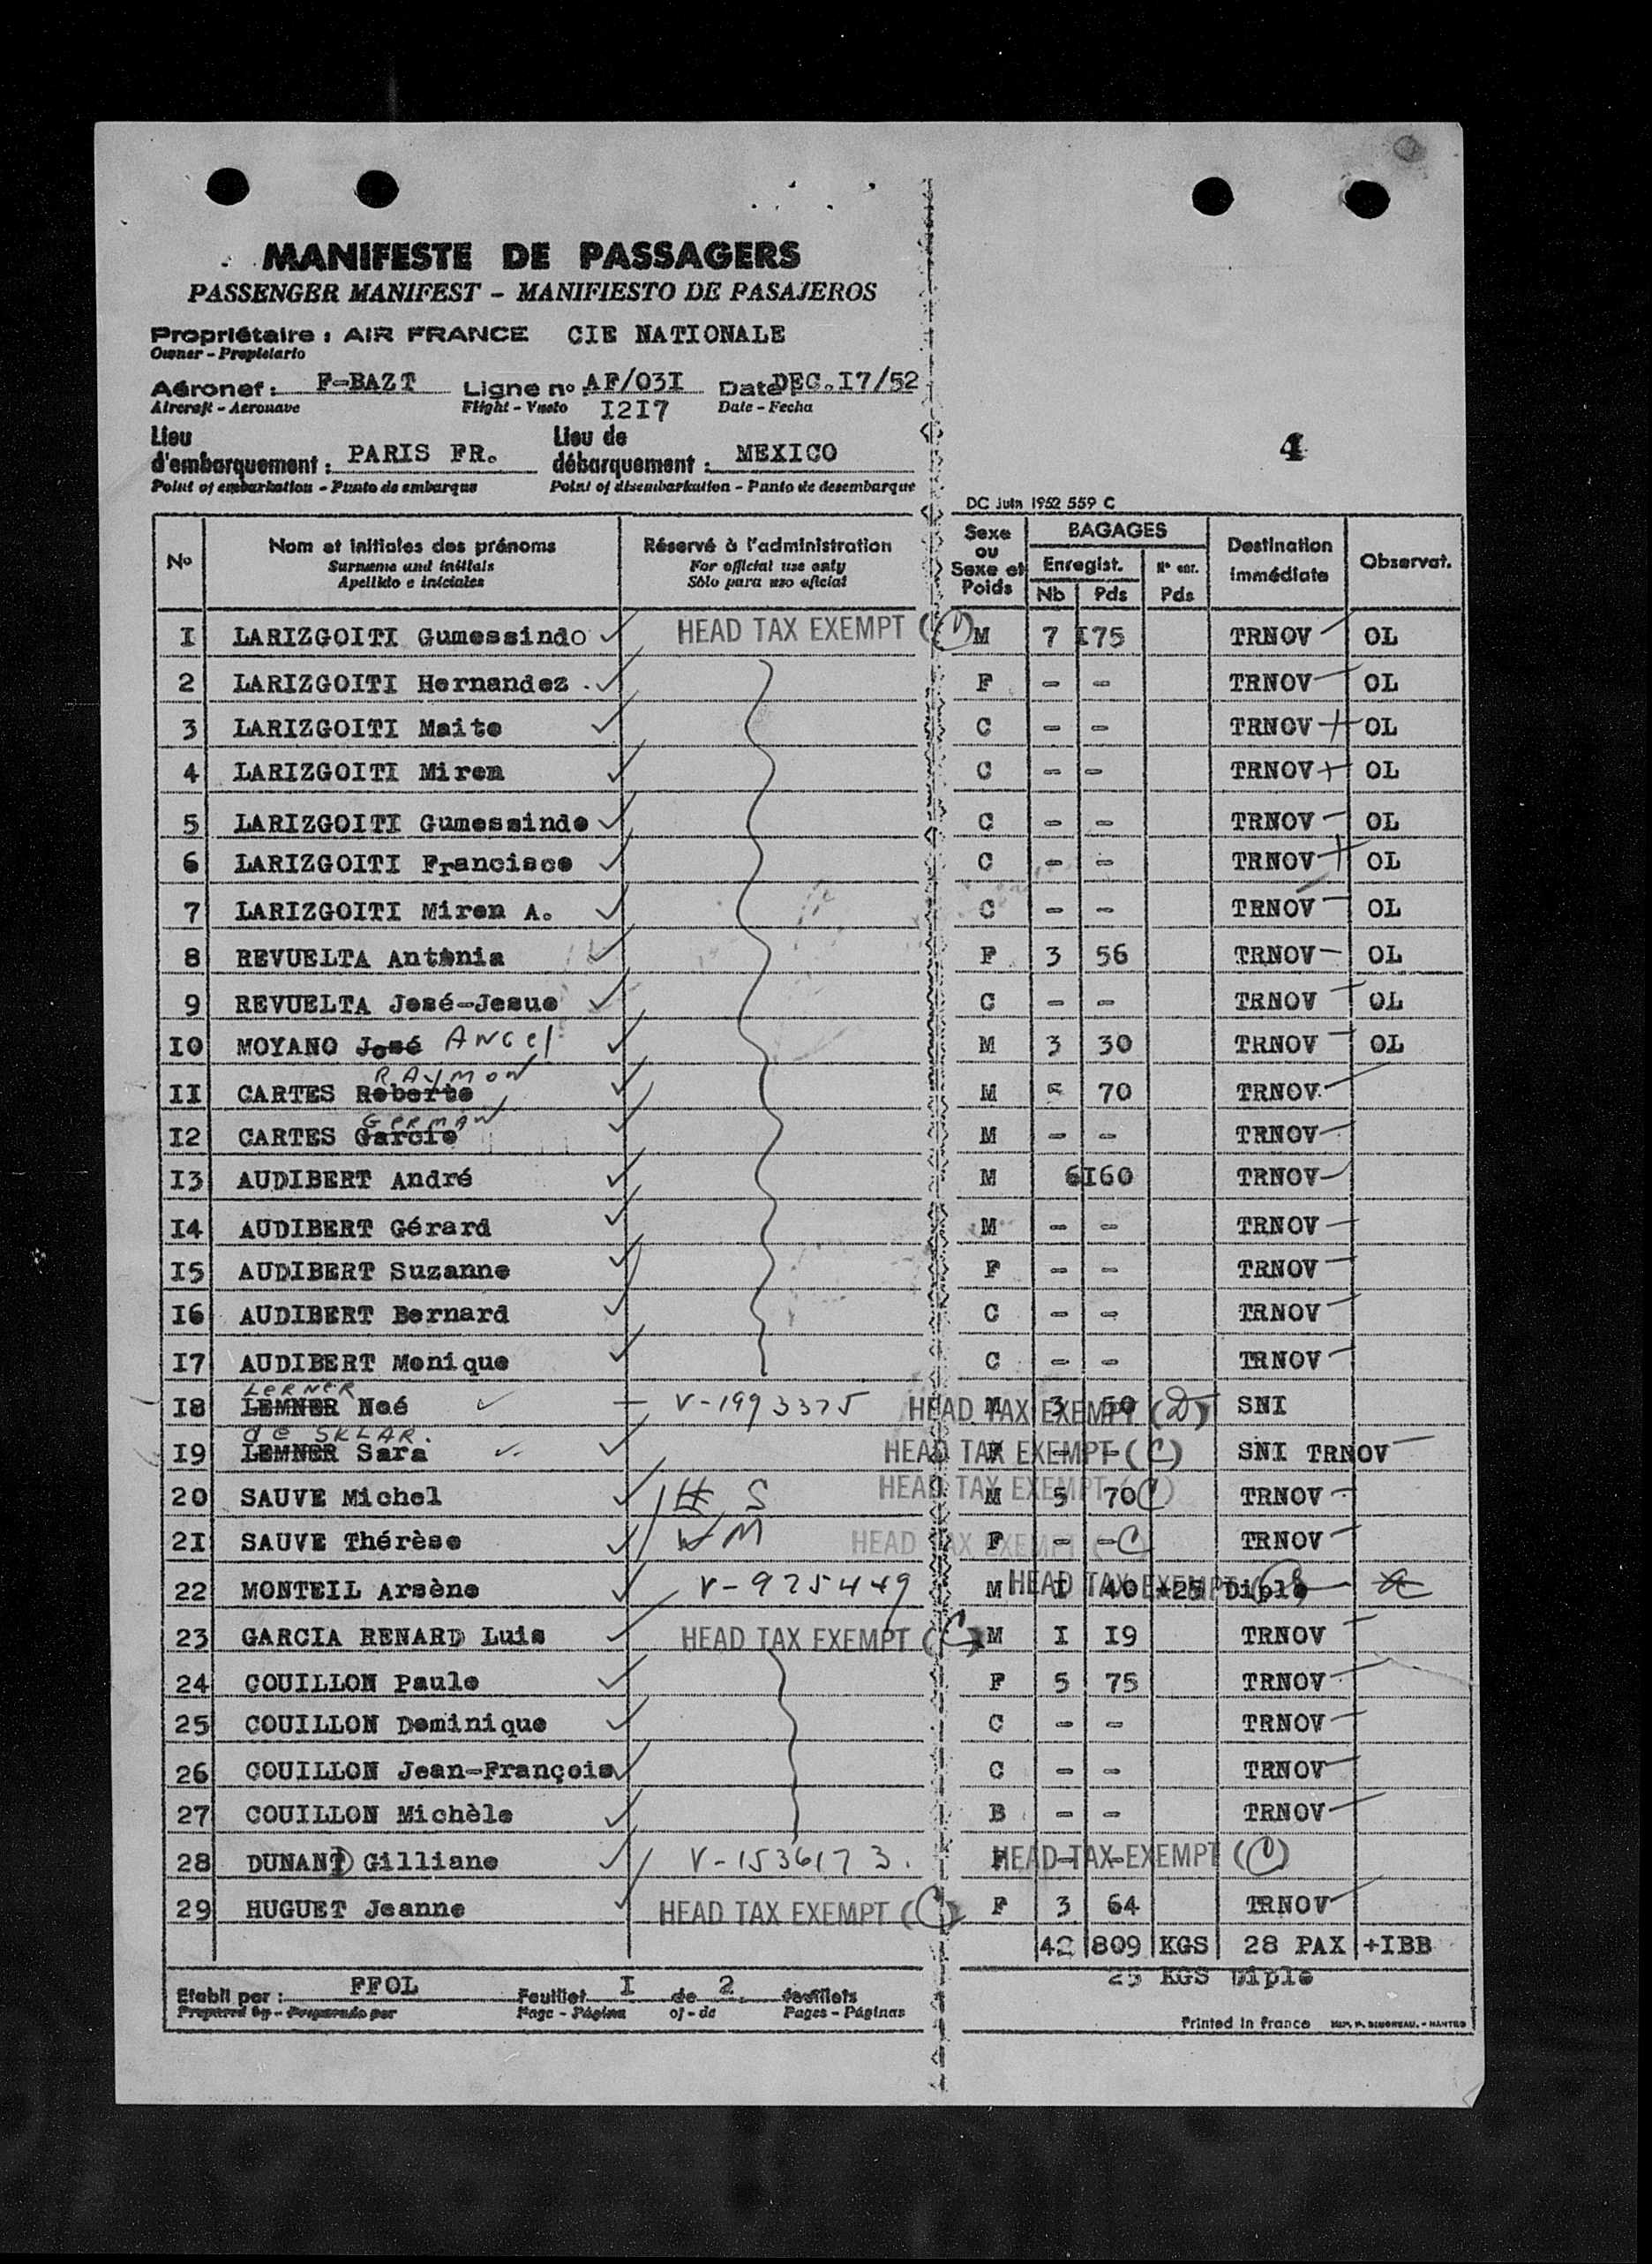 MANIFESTE DE PASSAGERS
PASSENGER MANIFEST - MANIFIESTO DE PASAJEROS
Propriétaire : AIR FRANCE CIE NATIONALE
Owner - Propietario
Aéronef : F-BAZT Ligne no AF/03I Date DEC.I7/52
Aircraft - Aeronave Flight - Vuelo I2I7 Date - Fecha
Lieu d'embarquement : PARIS FR. Lieu de débarquement : MEXICO
Point of embarkation - Punto de embarque Point of disembarkation - Punto de desembarque
4
DC Juin 1952 559 C
No Nom et initiales des prénoms Réservé à l'administration Sexe ou Sexe et Poids BAGAGES Destination immédiate Observat.
Surname and initials For official use only Enregist. Nº enr.
Apellido e iniciales Sólo para uso oficial Nb Pds Pds
I LARIZGOITI Gumessindo HEAD TAX EXEMPT (C) M 7 I75 TRNOV OL
2 LARIZGOITI Hernandez F - - TRNOV OL
3 LARIZGOITI Maite C - - TRNOV OL
4 LARIZGOITI Miren C - - TRNOV OL
5 LARIZGOITI Gumessindo C - - TRNOV OL
6 LARIZGOITI Francisco C - - TRNOV OL
7 LARIZGOITI Miren A. C - - TRNOV OL
8 REVUELTA Antonia F 3 56 TRNOV OL
9 REVUELTA José-Jesus C - - TRNOV OL
IO MOYANO José Angel M 3 30 TRNOV OL
RAYMON
II CARTES Roberto M 5 70 TRNOV
GERMAN
I2 CARTES Garcie M - - TRNOV
I3 AUDIBERT André M 6 I60 TRNOV
I4 AUDIBERT Gérard M - - TRNOV
I5 AUDIBERT Suzanne F - - TRNOV
I6 AUDIBERT Bernard C - - TRNOV
I7 AUDIBERT Monique C - - TRNOV
LERNER
I8 LEMNER Noé - V-1993375 HEAD TAX EXEMPT (D) M 3 50 SNI
de SKLAR.
I9 LEMNER Sara HEAD TAX EXEMPT (C) F - - SNI TRNOV
20 SAUVE Michel S HEAD TAX EXEMPT (C) M 5 70 TRNOV
2I SAUVE Thérèse M HEAD TAX EXEMPT (C) F - - TRNOV
22 MONTEIL Arsène V-975449 HEAD TAX EXEMPT M I 40 +25 Diple
23 GARCIA RENARD Luis HEAD TAX EXEMPT (C) M I I9 TRNOV
24 COUILLON Paule F 5 75 TRNOV
25 COUILLON Dominique C - - TRNOV
26 COUILLON Jean-François C - - TRNOV
27 COUILLON Michèle B - - TRNOV
28 DUNAND Gilliane V-1536173. HEAD TAX EXEMPT (C) F - -
29 HUGUET Jeanne HEAD TAX EXEMPT (C) F 3 64 TRNOV
42 809 KGS 28 PAX +IBB
25 KGS Diple
Etabli par : FFOL Feuillet I de 2 feuillets
Prepared by - Preparado por Page - Página of - de Pages - Páginas
Printed in France